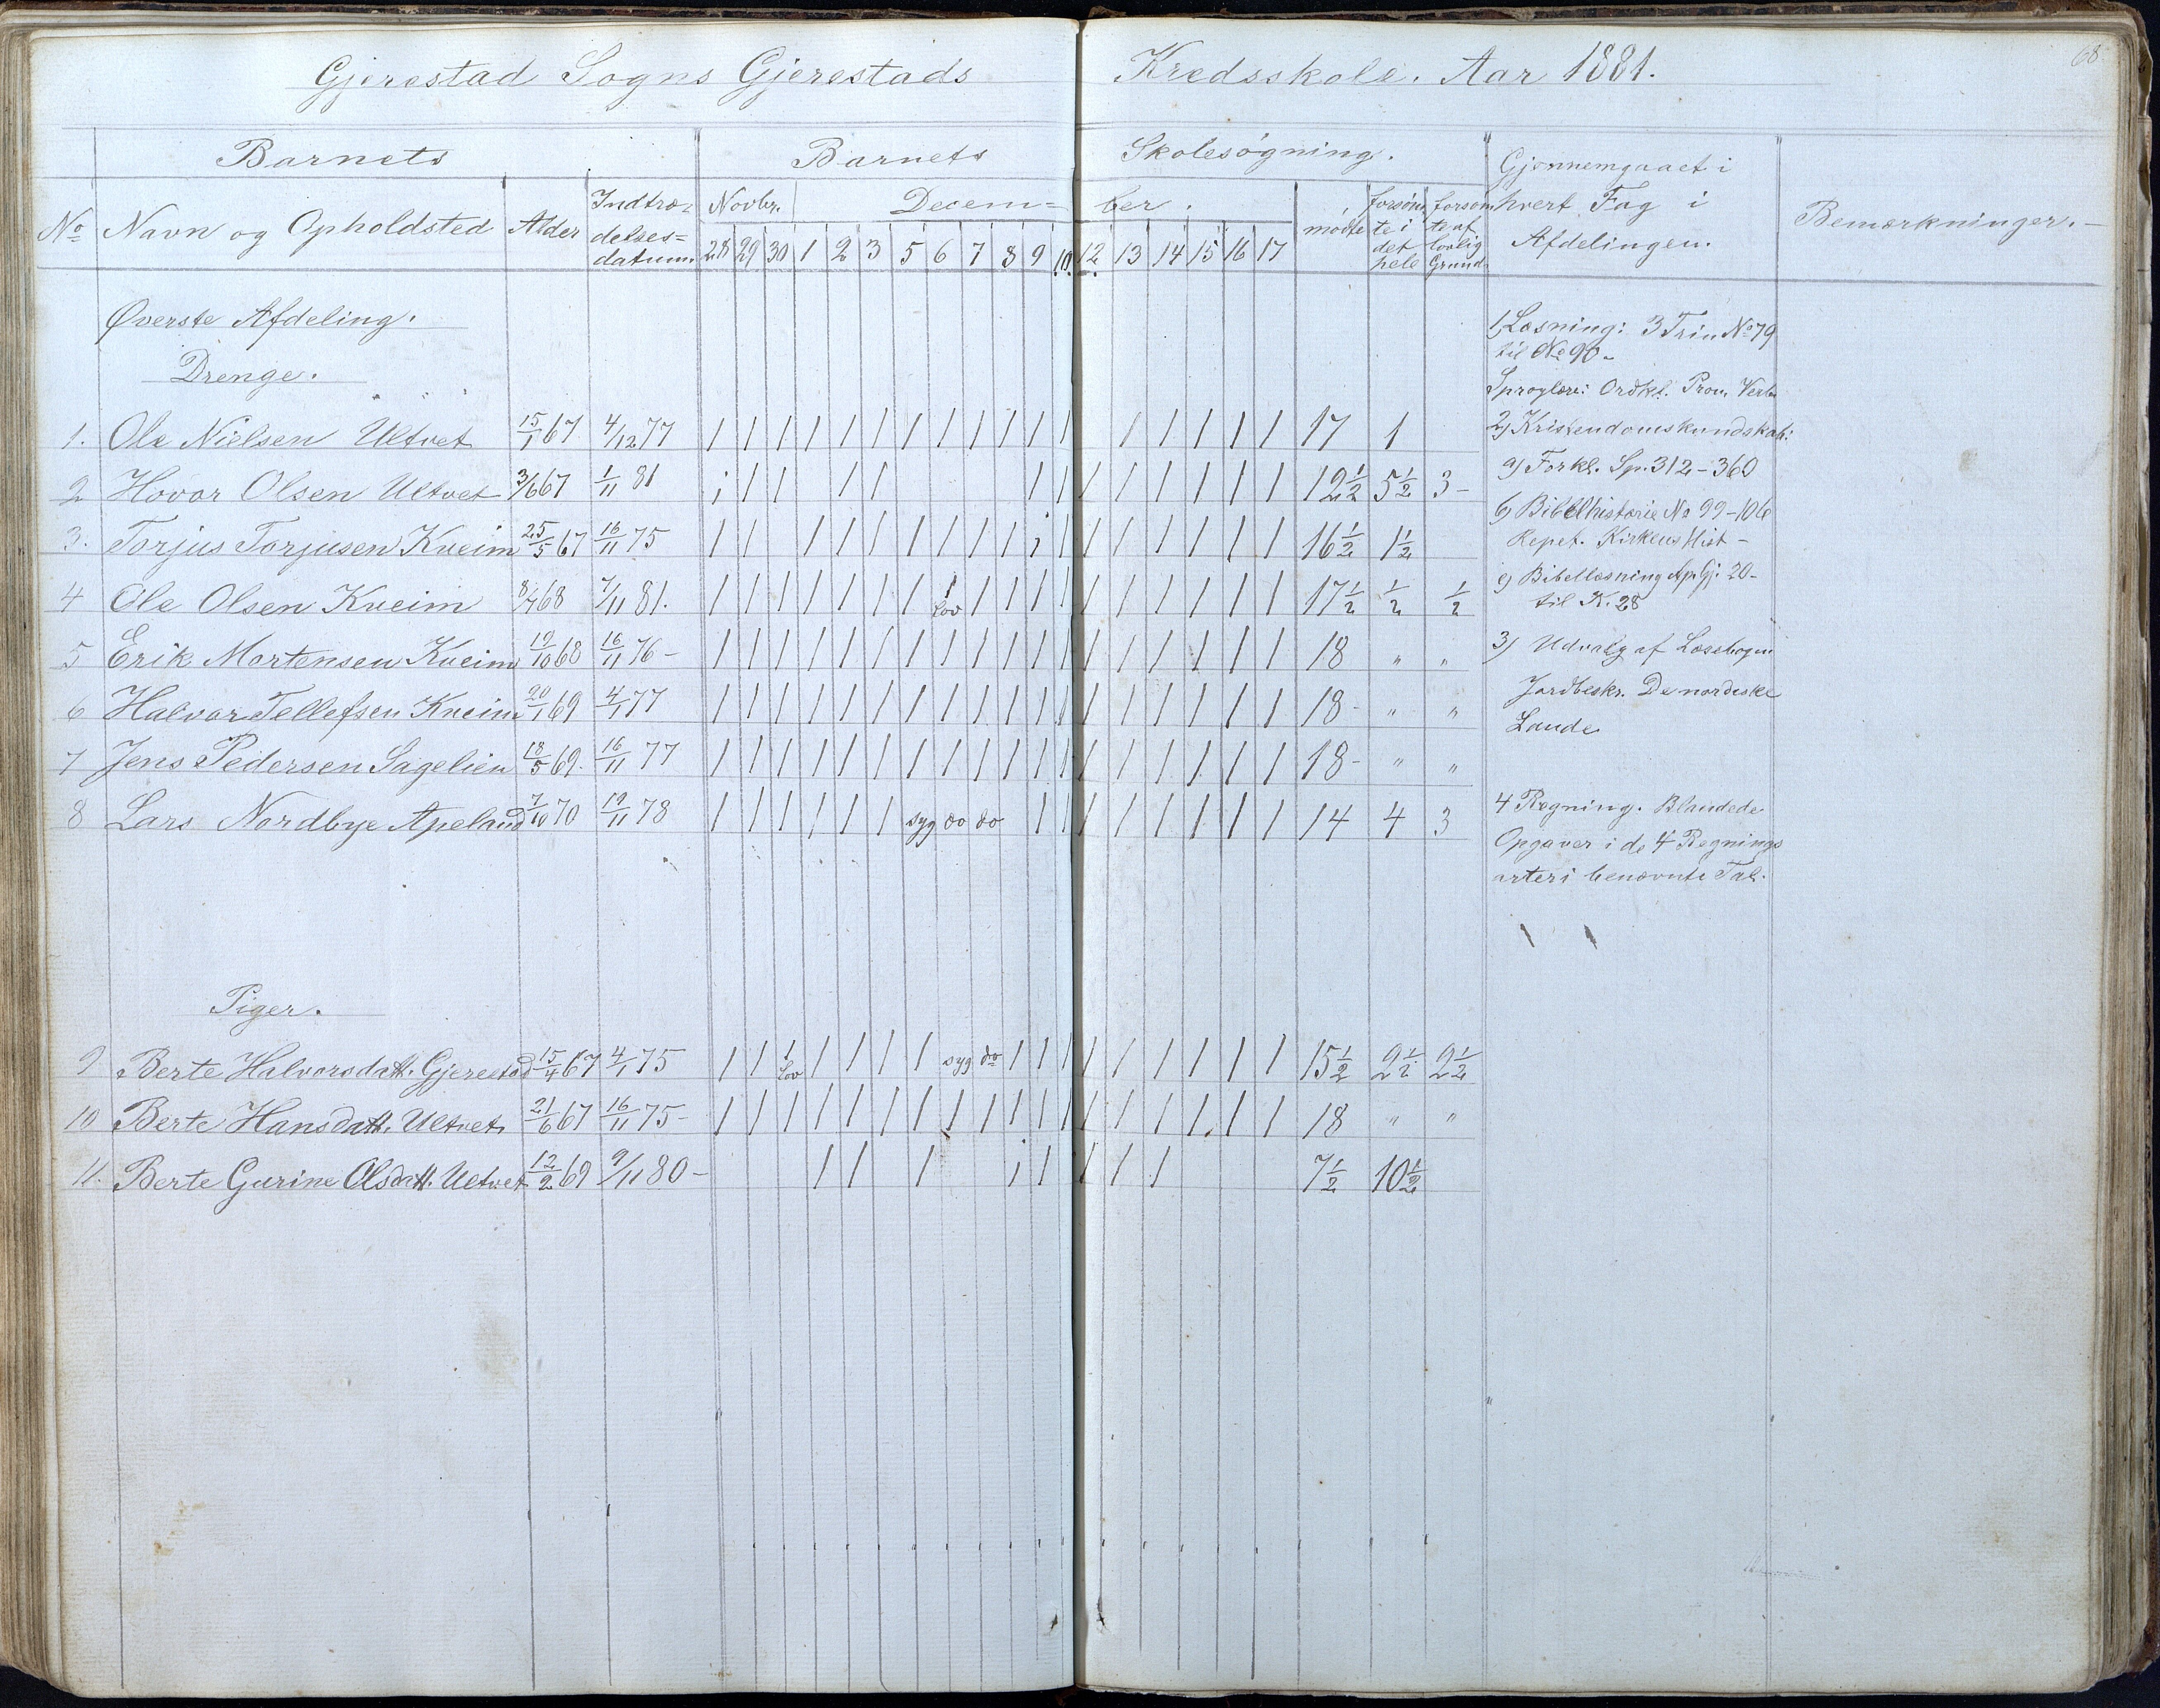 68
Gjerestad Sogns Gjerestads Kredsskole. Aar 1881.
Barnets Barnets Skolesøgning. Gjennemgaaet i hvert Fag i Afdelingen. Bemærkninger.-
No Navn og Opholdsted Alder Indtræ-delses=datum. Novbr. Decem=ber. mødte forsøm te i det hele forsøm te af lovlig Grund
28 29 30 1 2 3 5 6 7 8 9 10. 12. 13 14 15 16 17
Øverste Afdeling.
Drenge.
1. Ole Nielsen Ultvet 15/1 67 4/12 77 | | | | | | | | | | | | | | | | | 17 1
2 Hovor Olsen Ultvet 3/6 67 1/11 81 | | | | | | | | | | | | | 12 1/2 5 1/2 3 -
3. Torjus Torjusen Kveim 25/5 67 16/11 75 | | | | | | | | | | | | | | | | | 16 1/2 1 1/2
4 Ole Olsen Kveim 8/7 68 7/11 81. | | | | | | | | lov | | | | | | | | | | 17 1/2 1/2 1/2
5 Erik Mortensen Kveim 19/10 68 16/11 76 - | | | | | | | | | | | | | | | | | | 18 " "
6 Halvor Tellefsen Kveim 20/1 69 4/1 77 | | | | | | | | | | | | | | | | | | 18 - " "
7 Jens Pedersen Sagelien 18/5 69. 16/11 77 | | | | | | | | | | | | | | | | | | 18 - " "
8 Lars Nordbye Apeland 7/10 70 19/11 78 | | | | | | syg do do | | | | | | | | 14 4 3
Piger.
9 Berte Halvorsdatt. Gjerestad 15/4 67 4/1 75 | | | lov | | | | syg do | | | | | | | | | 15 1/2 2 1/2 2 1/2
10 Berte Hansdatt. Ultvet 21/6 67 16/11 75 - | | | | | | | | | | | | | | | | | | 18 " "
11. Berte Gurine Olsdatt. Ultvet 12/2 69 9/11 80 - | | | | | | | | 7 1/2 10 1/2
1, Læsning: 3 Trin No 79
til No 90.
Sproglære: Ordkl. Pron. Verb
2) Kristendomskundskab:
a) Forkl. Sp. 312 - 360
b) Bibelhistorie No 99 - 106
Repet. Kirkens Hist -
c) Bibellæsning Ap. Gj. 20 -
til K. 28
3) Udvalg af Læsebogen
Jordbeskr. De nordiske
Lande
4 Regning. Blandede
Opgaver i de 4 Regnings
arter i benævnte Tal.